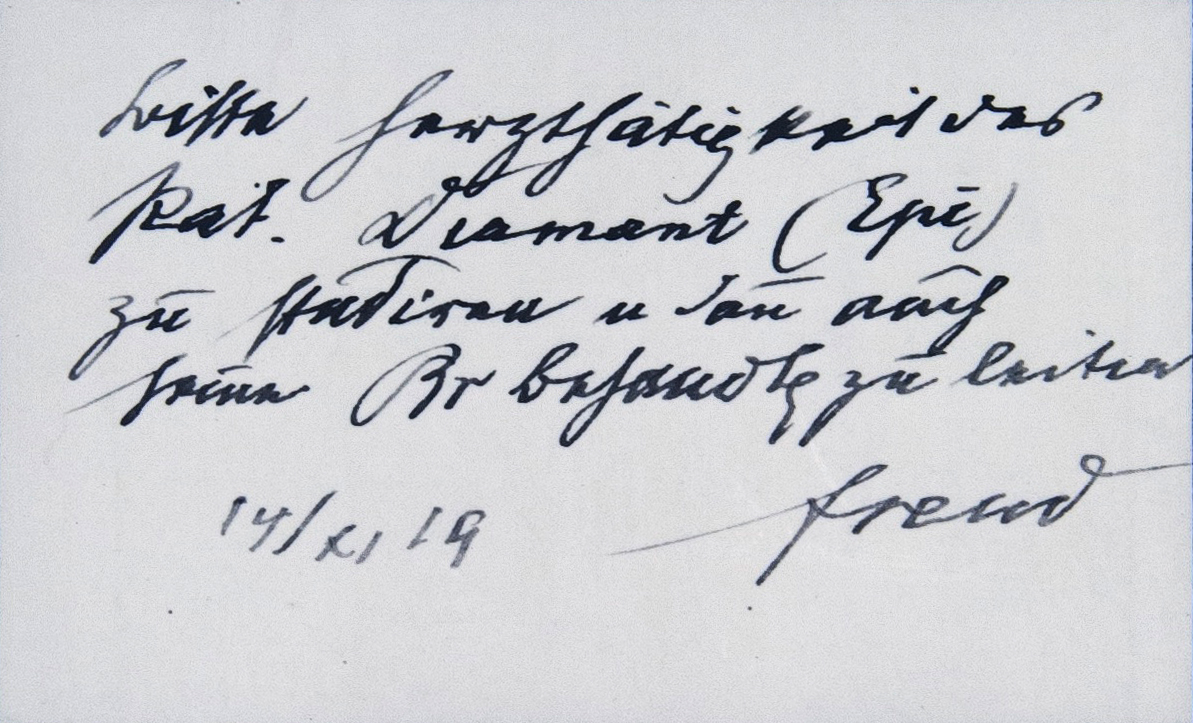 Bitte Herzthätigkeit des
Pat. Diamant (Epi)
zu studiren u dan̄ auch
seine Br behandlg zu leiten
14/XI 19 Freud